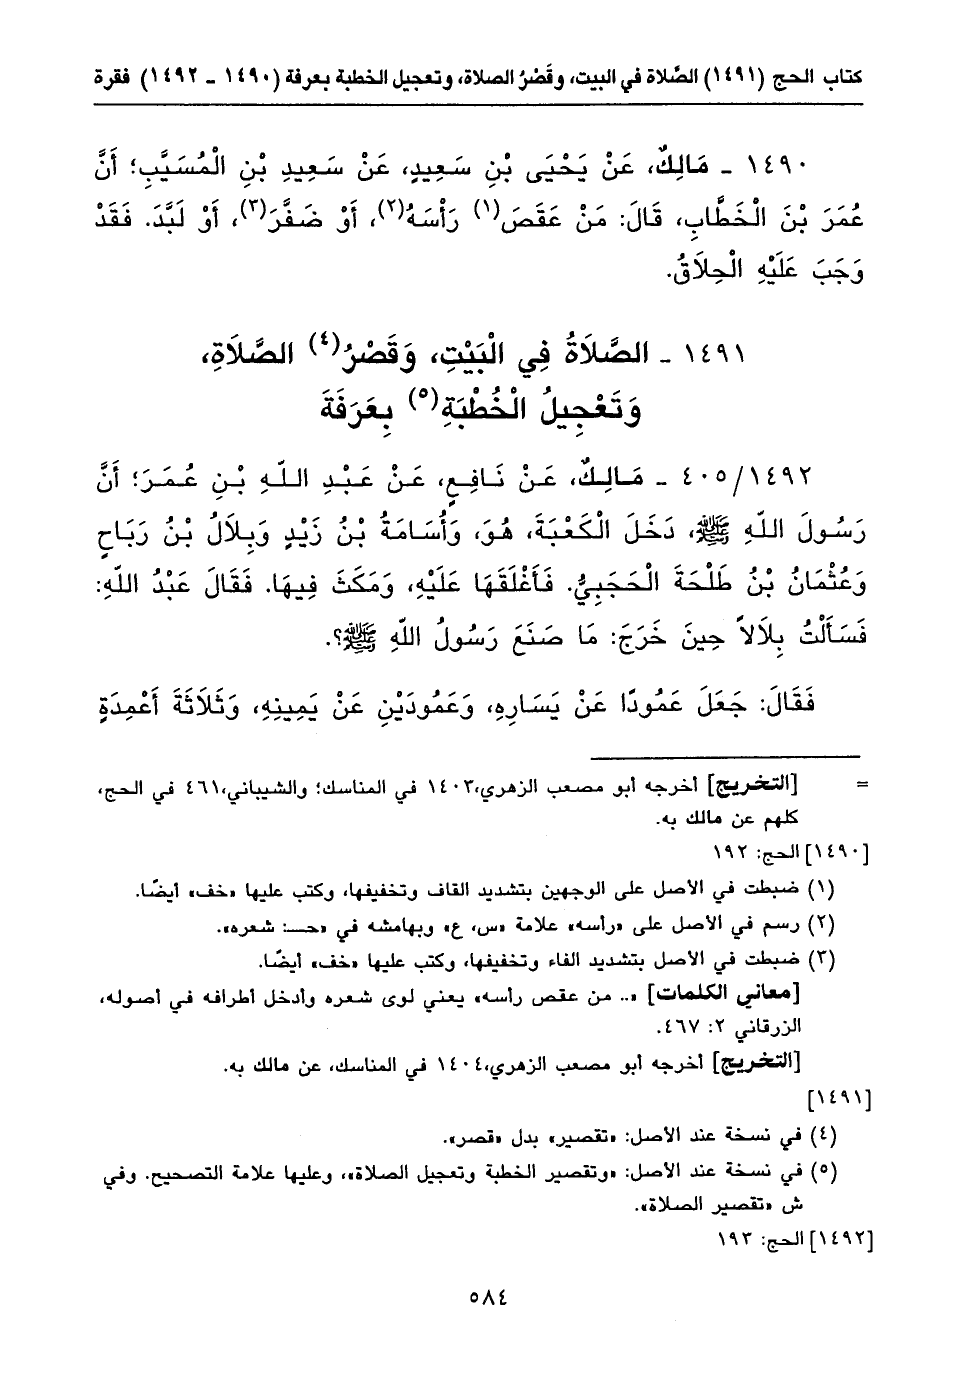 كتاب الحج (١٤٩١) الصَّلاة في البيت، وقَصْرُ الصلاة، وتعجيل الخطبة بعرفة (١٤٩٠ - ١٤٩٢) فقرة
١٤٩٠ - مَالِكٌ، عَنْ يَحْيَى بْنِ سَعِيدٍ، عَنْ سَعِيدِ بْنِ الْمُسَيَّبِ؛ أَنَّ
عُمَرَ بْنَ الْخَطَّابِ، قَالَ: مَنْ عَقَصَ(١) رَأْسَهُ(٢)، أَوْ ضَفَّرَ(٣)، أَوْ لَبَّدَ. فَقَدْ
وَجَبَ عَلَيْهِ الْحِلَاقُ.
١٤٩١ - الصَّلَاةُ فِي الْبَيْتِ، وَقَصْرُ(٤) الصَّلَاةِ،
وَتَعْجِيلُ الْخُطْبَةِ(٥) بِعَرَفَةَ
٤٠٥/١٤٩٢ - مَالِكٌ، عَنْ نَافِعٍ، عَنْ عَبْدِ اللّهِ بْنِ عُمَرَ؛ أَنَّ
رَسُولَ اللّهِ ﷺ، دَخَلَ الْكَعْبَةَ، هُوَ، وَأُسَامَةُ بْنُ زَيْدٍ وَبِلَالُ بْنُ رَبَاحٍ
وَعُثْمَانُ بْنُ طَلْحَةَ الْحَجَبِيُّ. فَأَغْلَقَهَا عَلَيْهِ، وَمَكَثَ فِيهَا. فَقَالَ عَبْدُ اللّه:
فَسَأَلْتُ بِلَالاً حِينَ خَرَجَ: مَا صَنَعَ رَسُولُ اللّهِ ﷺ؟.
فَقَالَ: جَعَلَ عَمُودًا عَنْ يَسَارِهِ، وَعَمُودَيْنِ عَنْ يَمِينِهِ، وَثَلَاثَةَ أَعْمِدَةٍ
= [التخريج] أخرجه أبو مصعب الزهري،١٤٠٣ في المناسك؛ والشيباني،٤٦١ في الحج،
كلهم عن مالك به.
[١٤٩٠] الحج: ١٩٢
(١) ضبطت في الأصل على الوجهين بتشديد القاف وتخفيفها، وكتب عليها «خف» أيضًا.
(٢) رسم في الأصل على «رأسه» علامة «س، ع» وبهامشه في «حـ: شعره».
(٣) ضبطت في الأصل بتشديد الفاء وتخفيفها، وكتب عليها «خف» أيضًا.
[معاني الكلمات] «.. من عقص رأسه» يعني لوى شعره وأدخل أطرافه في أصوله،
الزرقاني ٢: ٤٦٧.
[التخريج] أخرجه أبو مصعب الزهري،١٤٠٤ في المناسك، عن مالك به.
[١٤٩١]
(٤) في نسخة عند الأصل: «تقصير» بدل «قصر».
(٥) في نسخة عند الأصل: «وتقصير الخطبة وتعجيل الصلاة»، وعليها علامة التصحيح. وفي
ش «تقصير الصلاة».
[١٤٩٢] الحج: ١٩٣
٥٨٤